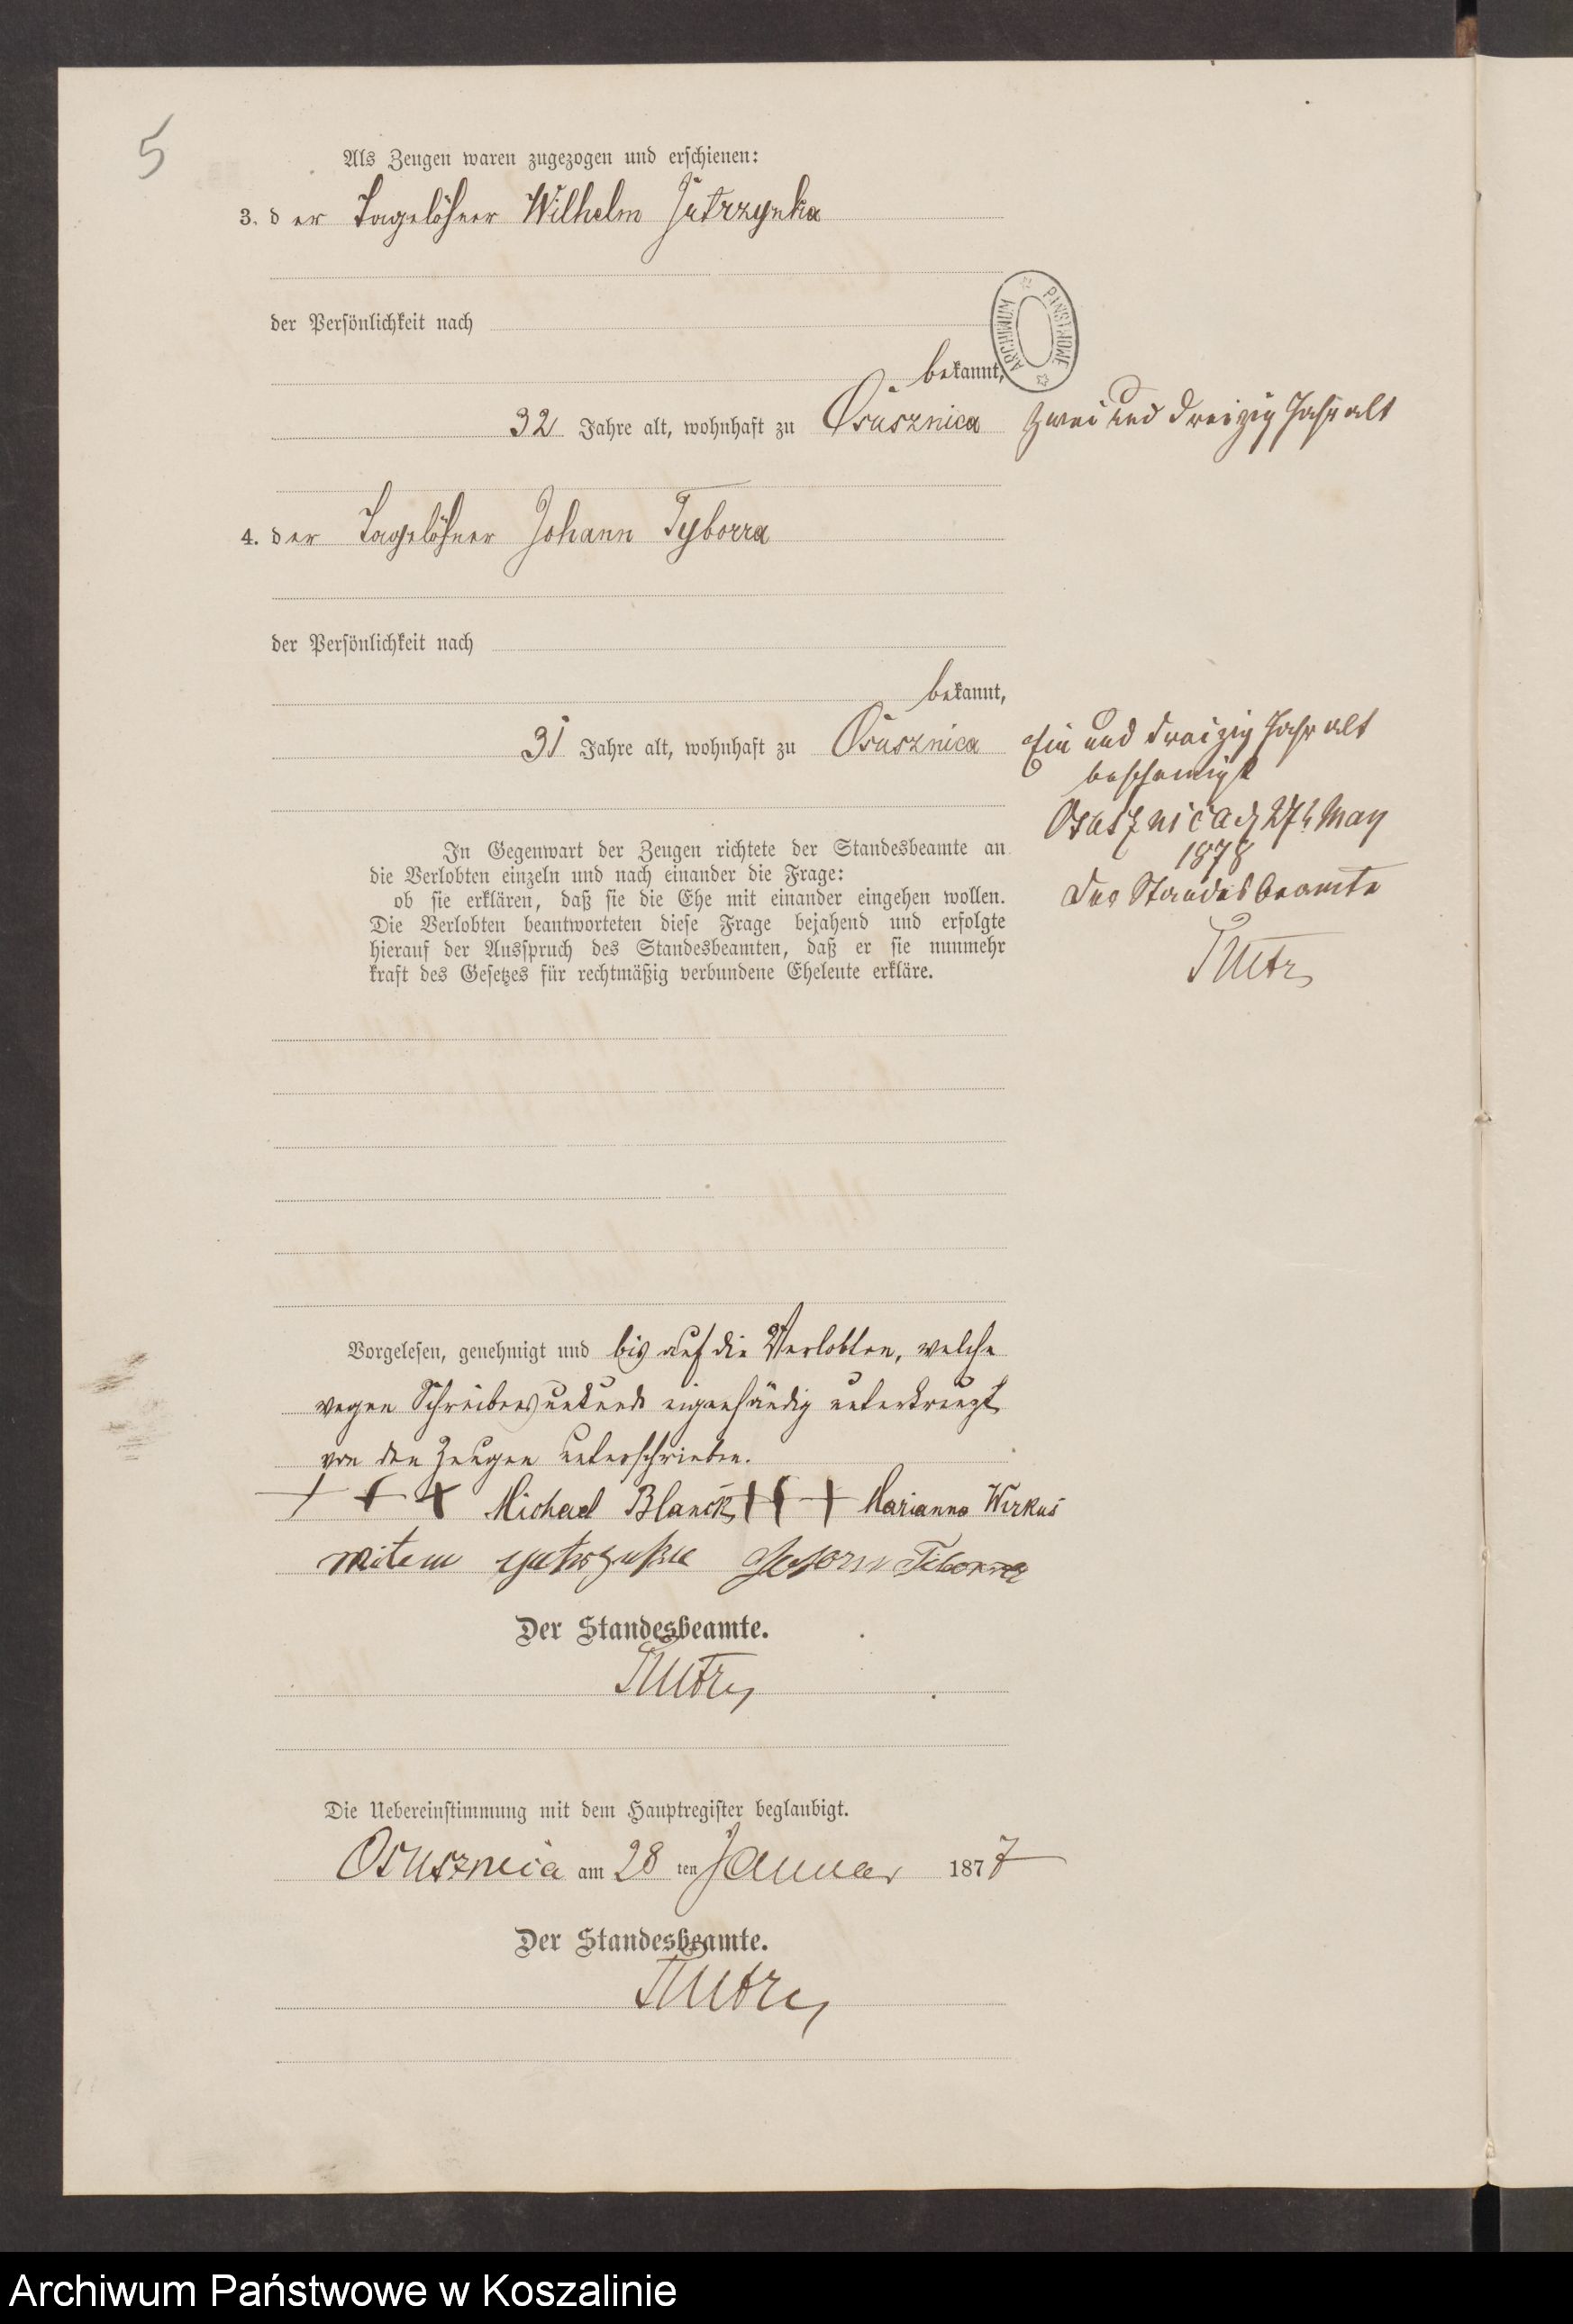 5
Als Zeugen waren zugezogen und erschienen:
3. der Tagelöhner Wilhelm Jutrzynka
der Persönlichkeit nach
bekannt,
32 Jahre alt, wohnhaft zu Osusznica zwei und dreizig Jahr alt
4. der Tagelöhner Johann Tyborra
der Persönlichkeit nach
bekannt,
31 Jahre alt, wohnhaft zu Osusznica Ein und dreizig Jahr alt
bescheinigt
Osusznica d 27t May
1878
Der Standesbeamte
In Gegenwart der Zeugen richtete der Standesbeamte an
die Verlobten einzeln und nach einander die Frage:
ob sie erklären, daß sie die Ehe mit einander eingehen wollen.
Die Verlobten beantworteten diese Frage bejahend und erfolgte
hierauf der Ausspruch des Standesbeamten, daß er sie nunmehr
kraft des Gesetzes für rechtmäßig verbundene Eheleute erkläre.
Vorgelesen, genehmigt und bis auf die Verlobten, welche
wegen Schreibensunkunde eigenhändig unterkreuzt
von den Zeugen unterschrieben.
+ + + Michael Blanck + + + Marianna Wirkus
Tiborra
Der Standesbeamte.
Die Uebereinstimmung mit dem Hauptregister beglaubigt.
Osusznica am 28 ten Januar 1877
Der Standesbeamte.
ARCHIWUM PAŃSTWOWE
Archiwum Państwowe w Koszalinie